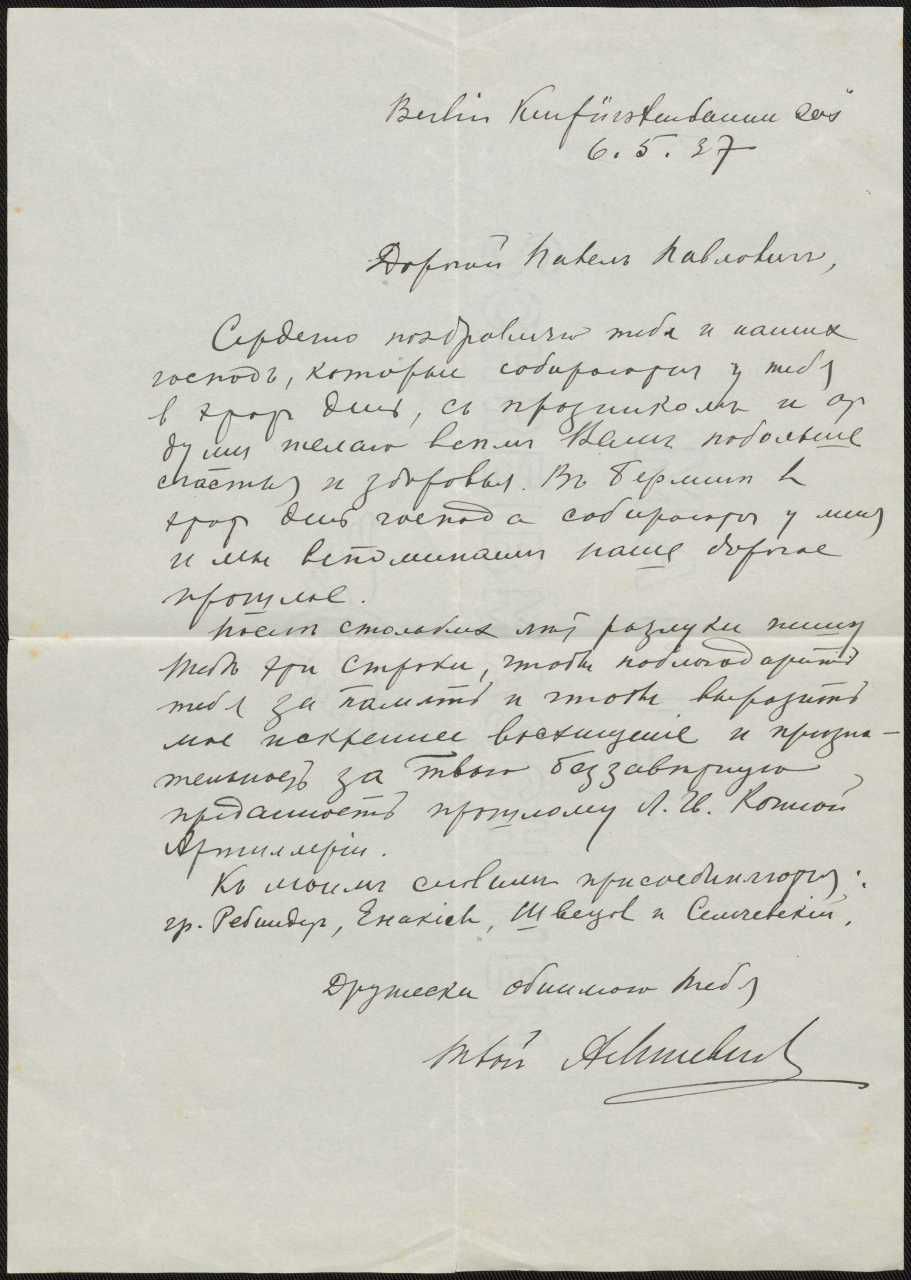 Berlin Kurfürstendamm
6. 5. 37
Дорогой Павелъ Павловичъ,
Сердечно поздравляю тебя и нашихъ
господъ, которые собираются у тебя
в этотъ день, съ праздникомъ и отъ
души желаю всемъ Вамъ побольше
счастья и здоровья. Въ Берлинѣ в
этотъ день господа собираются у меня
и мы вспоминаемъ наше дорогое
прошлое.
Послѣ столькихъ лѣтъ разлуки пишу
тебѣ эти строки, чтобы поблагодарить
тебя за память и чтобы выразить
мое искреннее восхищеніе и призна-
тельность за твою беззавѣтную
преданность прошлому Л. Гв. Конной
Артиллеріи.
Къ моимъ словамъ присоединяются:
гр. Ребиндеръ, Енакіев, Швецов и
Дружески обнимаю тебя
твой